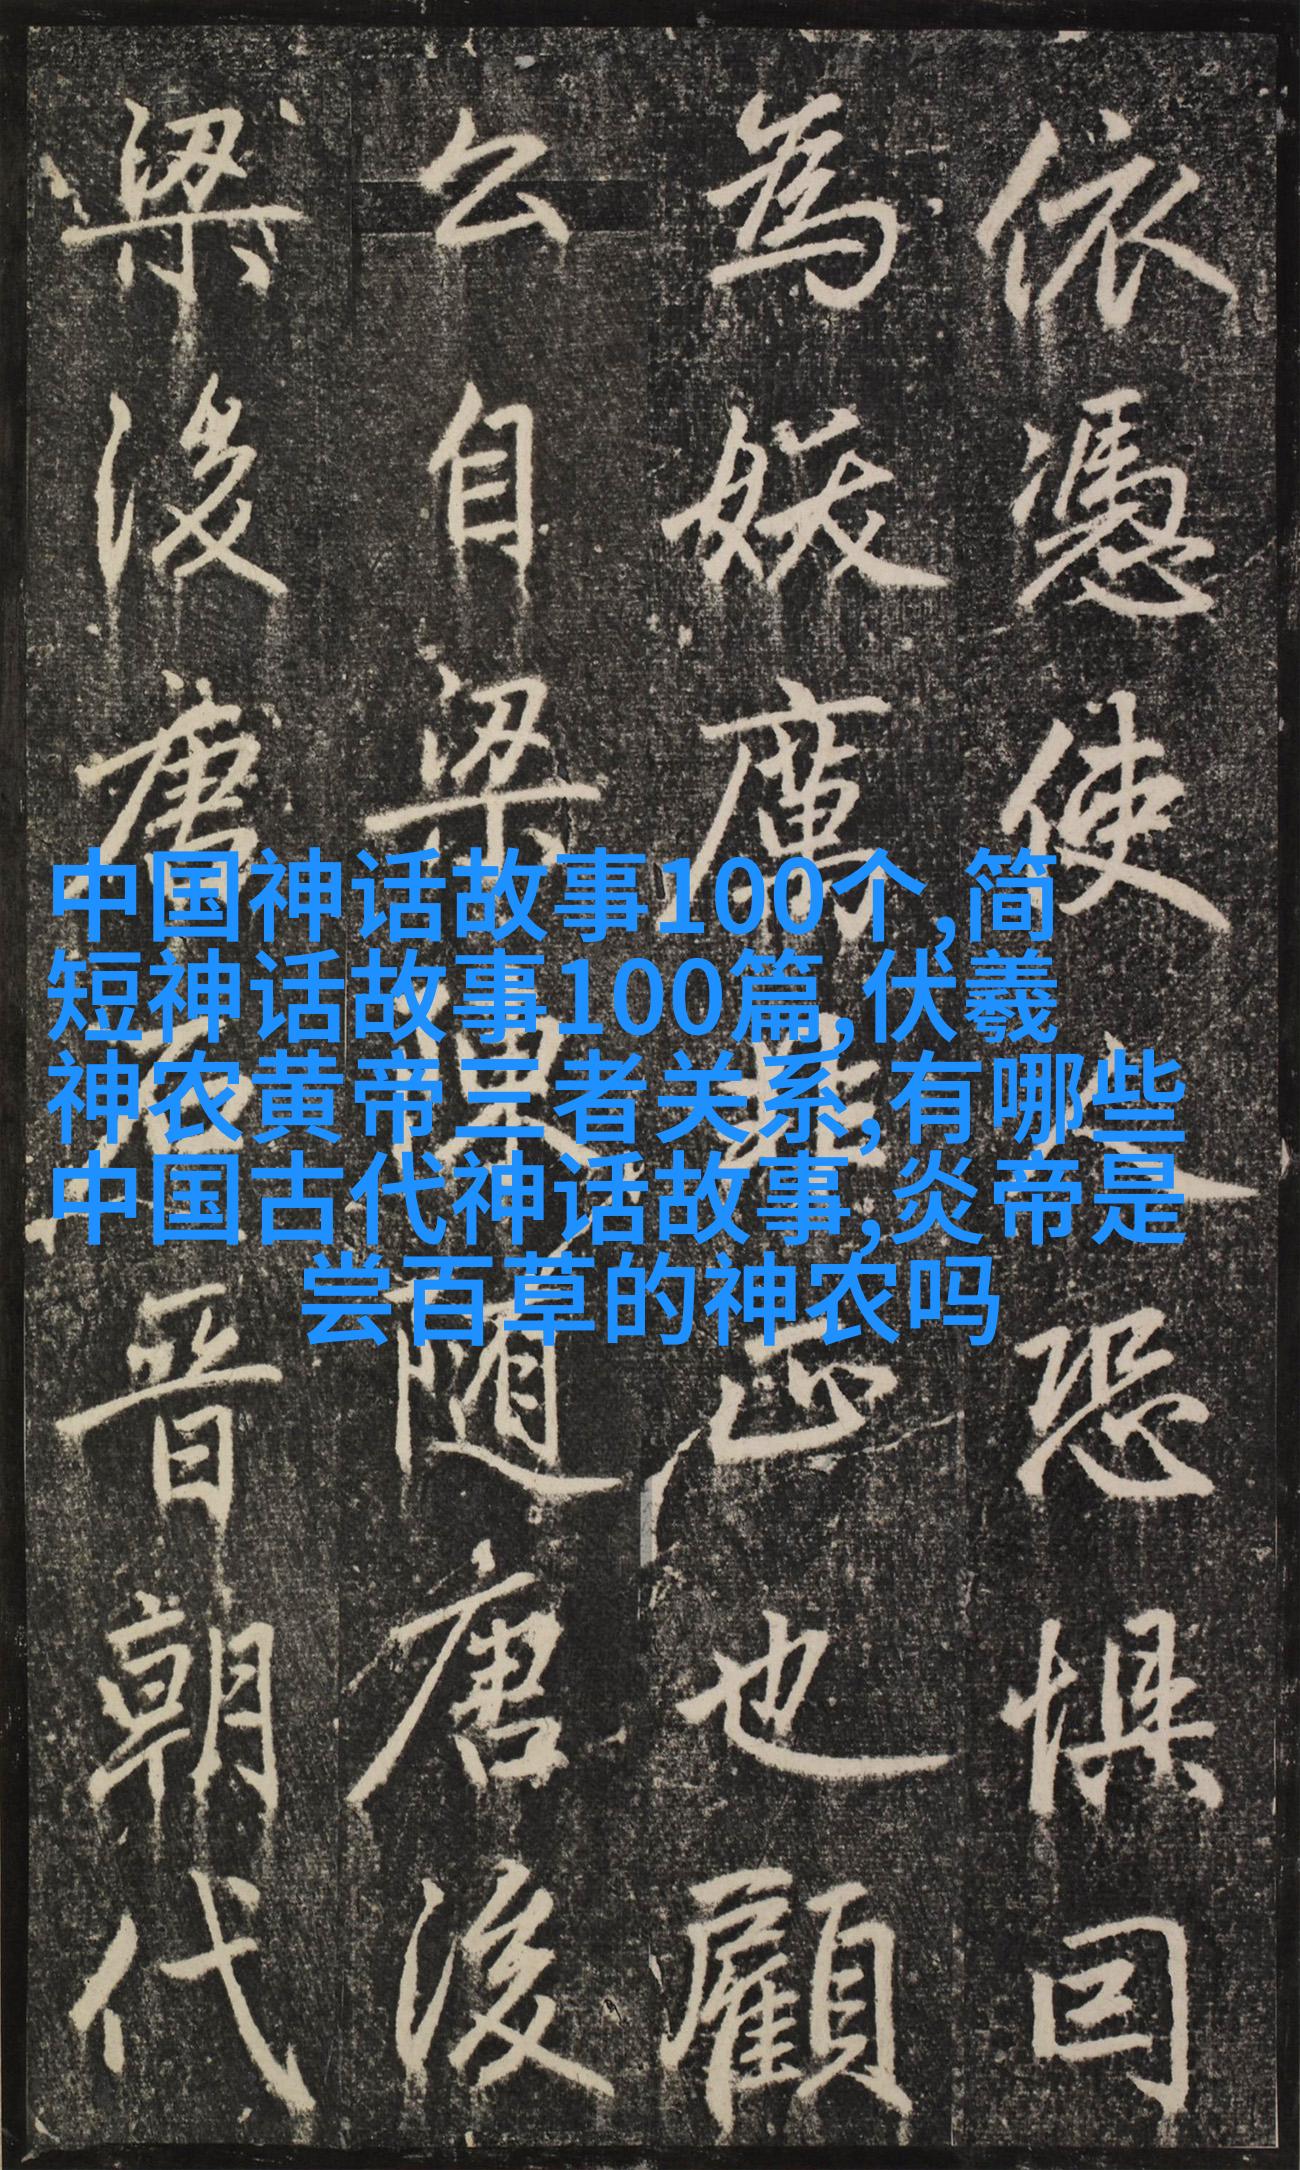 依憑使之恐懼
為妖厲正也顧
公自梁漢隨唐後
梁後唐石晉朝代
中国神话故事100个,简
短神话故事100篇,伏羲
神农黄帝三者关系,有哪些
中国古代神话故事,炎帝是
尝百草的神农吗